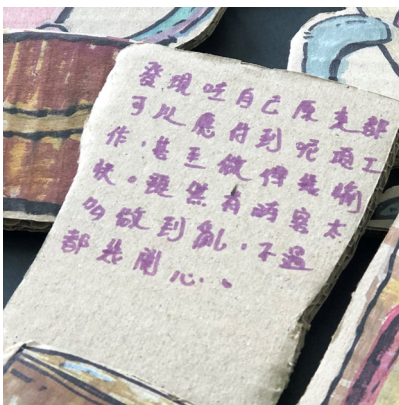 發現咗自己原來都
可以應付到呢項工
作，甚至做得幾愉
快。雖然有時客太
多做到亂，不過
都幾開心。